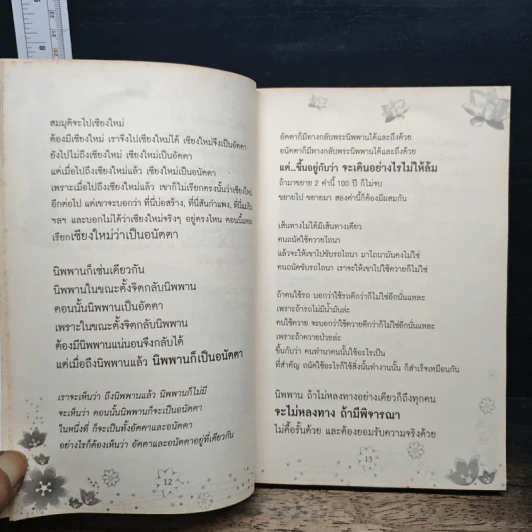 สมมุติจะไปเชียงใหม่
ต้องมีเชียงใหม่ เราจึงไปเชียงใหม่ได้ เชียงใหม่จึงเป็นอัตตา
ยังไปไม่ถึงเชียงใหม่ เชียงใหม่เป็นอัตตา
แต่เมื่อไปถึงเชียงใหม่แล้ว เชียงใหม่เป็นอนัตตา
เพราะเมื่อไปถึงเชียงใหม่แล้ว เขาก็ไม่เรียกตรงนั้นว่าเชียงใหม่
อีกต่อไป แต่เขาจะบอกว่า ที่นี่บ่อสร้าง, ที่นี่สันกำแพง, ที่นี่แม่ริม
ฯลฯ และบอกไม่ได้ว่าเชียงใหม่จริงๆ อยู่ตรงไหน ตอนนี้แหละ
เรียกเชียงใหม่ว่าเป็นอนัตตา
นิพพานก็เช่นเดียวกัน
นิพพานในขณะตั้งจิตกลับนิพพาน
ตอนนั้นนิพพานเป็นอัตตา
เพราะในขณะตั้งจิตกลับนิพพาน
ต้องมีนิพพานแน่นอนจึงกลับได้
แต่เมื่อถึงนิพพานแล้ว นิพพานก็เป็นอนัตตา
เราจะเห็นว่า ถึงนิพพานแล้ว นิพพานก็ไม่มี
จะเห็นว่า ตอนนั้นนิพพานก็จะเป็นอนัตตา
ในหนึ่งที่ ก็จะเป็นทั้งอัตตาและอนัตตา
อย่างไรก็ต้องเห็นว่า อัตตาและอนัตตาอยู่ที่เดียวกัน
12
อัตตาก็มีทางกลับพระนิพพานได้และถึงด้วย
อนัตตาก็มีทางกลับพระนิพพานได้และถึงด้วย
แต่...ขึ้นอยู่กับว่า จะเดินอย่างไรไม่ให้ล้ม
ถ้ามาขยาย 2 คำนี้ 100 ปี ก็ไม่จบ
ขยายไป ขยายมา สองคำนี้ก็ต้องมีผสมกัน
เส้นทางไม่ได้มีเส้นทางเดียว
คนถนัดใช้ควายไถนา
แล้วจะให้เขาไปขับรถไถนา มาไถนามันคงไม่ใช่
คนถนัดขับรถไถนา เราจะให้เขาไปใช้ควายก็ไม่ใช่
ถ้าคนใช้รถ บอกว่าใช้รถดีกว่าก็ไม่ใช่อีกนั่นแหละ
เพราะถ้ารถไม่มีน้ำมันล่ะ
คนใช้ควาย จะบอกว่าใช้ควายดีกว่าก็ไม่ใช่อีกนั่นแหละ
เพราะถ้าควายป่วยล่ะ
ขึ้นกับว่า คนทำนาคนนั้นใช้อะไรเป็น
ที่สำคัญ ถนัดใช้อะไรก็ใช้สิ่งนั้นทำงานนั้น ก็สำเร็จเหมือนกัน
นิพพาน ถ้าไม่หลงทางอย่างเดียวก็ถึงทุกคน
จะไม่หลงทาง ถ้ามีพิจารณา
ไม่ดื้อรั้นด้วย และต้องยอมรับความจริงด้วย
13